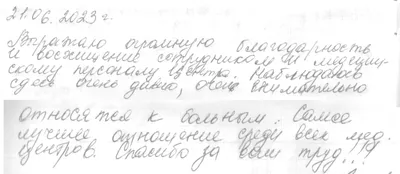 21.06.2023 г.
Выражаю огромную благодарность
и восхищение сотрудникам и медицин-
скому персоналу центра. Наблюдаюсь
здесь очень давно, очень внимательно
относятся к больным. Самое
лучшее отношение среди всех мед.
центров. Спасибо за ваш труд!!!